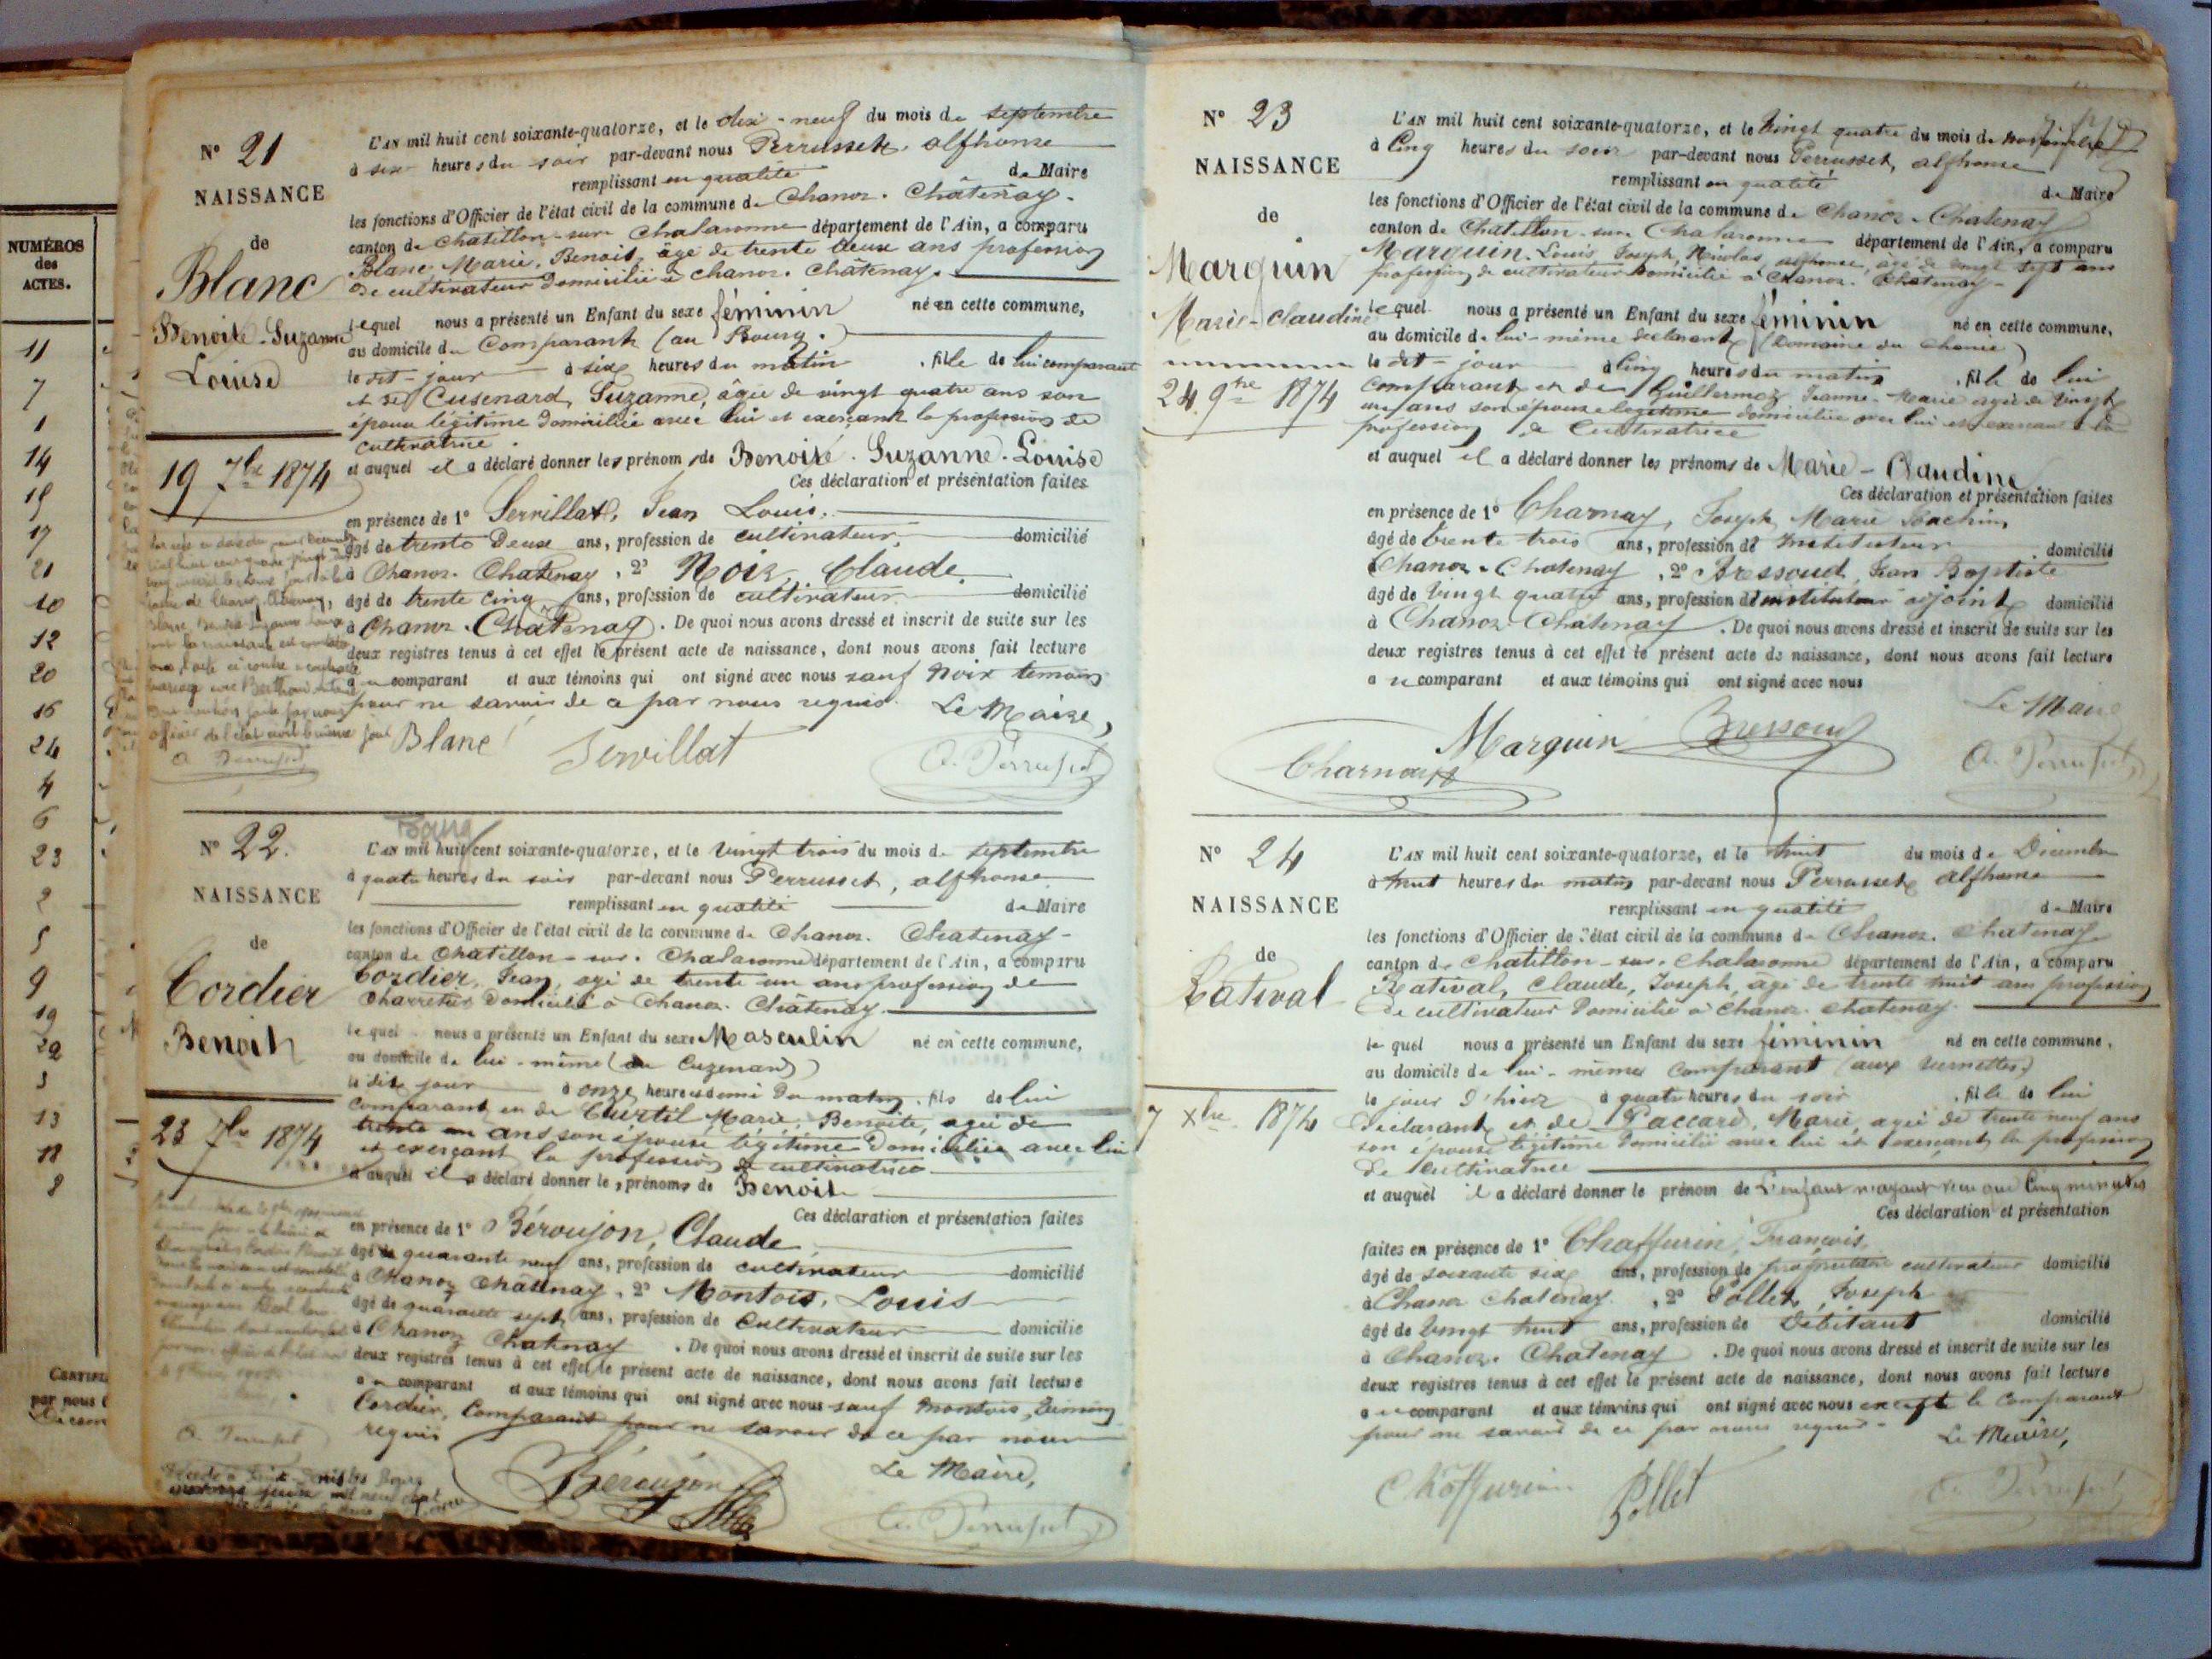 NUMÉROS
des
ACTES.
11
7
1
14
15
17
21
10
12
20
16
24
4
6
23
2
5
9
19
22
3
13
18
8
par nous
N° 21
NAISSANCE
de
Blanc
Benoite-Suzanne
Louise
19 7bre 1874
L'AN mil huit cent soixante-quatorze, et le dix-neuf du mois de septembre
à six heures du soir par-devant nous Perrusset, alphonse
remplissant en qualité de Maire
les fonctions d'Officier de l'état civil de la commune de Chanoz-Châtenay
canton de Chatillon-sur-Chalaronne département de l'Ain, a comparu
Blanc, Marie, Benoit, âgé de trente deux ans profession
de cultivateur domicilié à chanoz-Châtenay.
lequel nous a présenté un Enfant du sexe féminin né en cette commune,
au domicile du Comparant (au Bourg.)
le dit-jour à six heures du matin, fille de lui comparant
et de Cusenard, Suzanne, âgée de vingt quatre ans son
épouse légitime domiciliée avec lui et exerçant la profession de
cultivatrice
et auquel il a déclaré donner les prénoms de Benoite-Suzanne-Louise
Ces déclaration et présentation faites
en présence de 1° Servillat, Jean Louis,
âgé de trente Deux ans, profession de cultivateur, domicilié
à Chanoz-Chatenay, 2° Noir, Claude,
âgé de trente cinq ans, profession de cultivateur domicilié
à Chanoz-Châtenay. De quoi nous avons dressé et inscrit de suite sur les
deux registres tenus à cet effet le présent acte de naissance, dont nous avons fait lecture
au comparant et aux témoins qui ont signé avec nous sauf Noir témoin
pour ne savoir de ce par nous requis. Le Maire,
Blanc Servillat A. Perrusset
N° 22.
NAISSANCE
de
Cordier
Benoit
23 7bre 1874
L'AN mil huit cent soixante-quatorze, et le vingt trois du mois de septembre
à quatre heures du soir par-devant nous Perrusset, alphonse
remplissant en qualité de Maire
les fonctions d'Officier de l'état civil de la commune de Chanoz-Chatenay
canton de Chatillon-sur-Chalaronne département de l'Ain, a comparu
Cordier, Jean, agé de trente un ans profession de
charretier domicilié à Chanoz-Châtenay.
lequel nous a présenté un Enfant du sexe Masculin né en cette commune,
au domicile de lui-même (au Cuzenard)
le dit jour à onze heures et demi du matin, fils de lui
comparant et de Curtil, Marie, Benoite, agée de
trente un ans son épouse légitime domiciliée avec lui
et exerçant la profession de cultivatrice
et auquel il a déclaré donner les prénoms de Benoit
Ces déclaration et présentation faites
en présence de 1° Béroujon, Claude
âgé de quarante neuf ans, profession de cultivateur domicilié
à Chanoz Châtenay, 2° Montois, Louis
âgé de quarante sept ans, profession de Cultivateur domicilié
à Chanoz Chatenay. De quoi nous avons dressé et inscrit de suite sur les
deux registres tenus à cet effet le présent acte de naissance, dont nous avons fait lecture
au comparant et aux témoins qui ont signé avec nous sauf Montois, témoin
Cordier, Comparant pour ne savoir de ce par nous
requis
Le Maire,
Béroujon A. Perrusset
N° 23
NAISSANCE
de
Marguin
Marie-Claudine
24 9bre 1874
L'AN mil huit cent soixante-quatorze, et le Vingt quatre du mois de novembre
à Cinq heures du soir par-devant nous Perrusset, alphonse
remplissant en qualité de Maire
les fonctions d'Officier de l'état civil de la commune de Chanoz-Chatenay
canton de Chatillon-sur-Chalaronne département de l'Ain, a comparu
Marguin, Louis, Joseph, Nicolas, alphonse, agé de vingt sept ans
profession de cultivateur domicilié à Chanoz-Chatenay
lequel nous a présenté un Enfant du sexe féminin né en cette commune,
au domicile de lui-même déclarant (Domaine du )
le dit-jour à Cinq heures du matin, fille de lui
comparant et de Guillermoz Jeanne-Marie agée de Vingt
un ans son épouse légitime domiciliée avec lui et exerçant la
profession de Cultivatrice
et auquel il a déclaré donner les prénoms de Marie-Claudine
Ces déclaration et présentation faites
en présence de 1° Charnay, Joseph Marie Joachim
âgé de trente trois ans, profession de instituteur domicilié
à Chanoz-Chatenay, 2° Bressoud, Jean Baptiste
âgé de Vingt quatre ans, profession de instituteur adjoint domicilié
à Chanoz Chatenay. De quoi nous avons dressé et inscrit de suite sur les
deux registres tenus à cet effet le présent acte de naissance, dont nous avons fait lecture
au comparant et aux témoins qui ont signé avec nous
Le Maire
Charnay Marguin Bressoud A. Perrusset
N° 24
NAISSANCE
de
Rativał
7 Xbre 1874
L'AN mil huit cent soixante-quatorze, et le huit du mois de Décembre
à huit heures du matin par-devant nous Perrusset alphonse
remplissant en qualité de Maire
les fonctions d'Officier de l'état civil de la commune de Chanoz-Chatenay
canton de Chatillon-sur-Chalaronne département de l'Ain, a comparu
Ratival, Claude, Joseph, âgé de trente huit ans profession
de cultivateur domicilié à Chanoz-Chatenay.
lequel nous a présenté un Enfant du sexe féminin né en cette commune,
au domicile de lui-même Comparant (aux Vernettes)
le jour d'hier à quatre heures du soir, fille de lui
déclarant et de Paccard, Marie, agée de trente neuf ans
son épouse légitime domiciliée avec lui et exerçant la profession
de cultivatrice
et auquel il a déclaré donner le prénom de L'enfant n'ayant vécu que Cinq minutes
Ces déclaration et présentation
faites en présence de 1° Chaffurin, François,
âgé de soixante six ans, profession de propriétaire cultivateur domicilié
à Chanoz Chatenay, 2° Pollet, Joseph
âgé de Vingt huit ans, profession de Débitant domicilié
à Chanoz-Chatenay. De quoi nous avons dressé et inscrit de suite sur les
deux registres tenus à cet effet le présent acte de naissance, dont nous avons fait lecture
au comparant et aux témoins qui ont signé avec nous excepté le Comparant
pour ne savoir de ce par nous requis.
Le Maire,
Chaffurin Pollet A. Perrusset